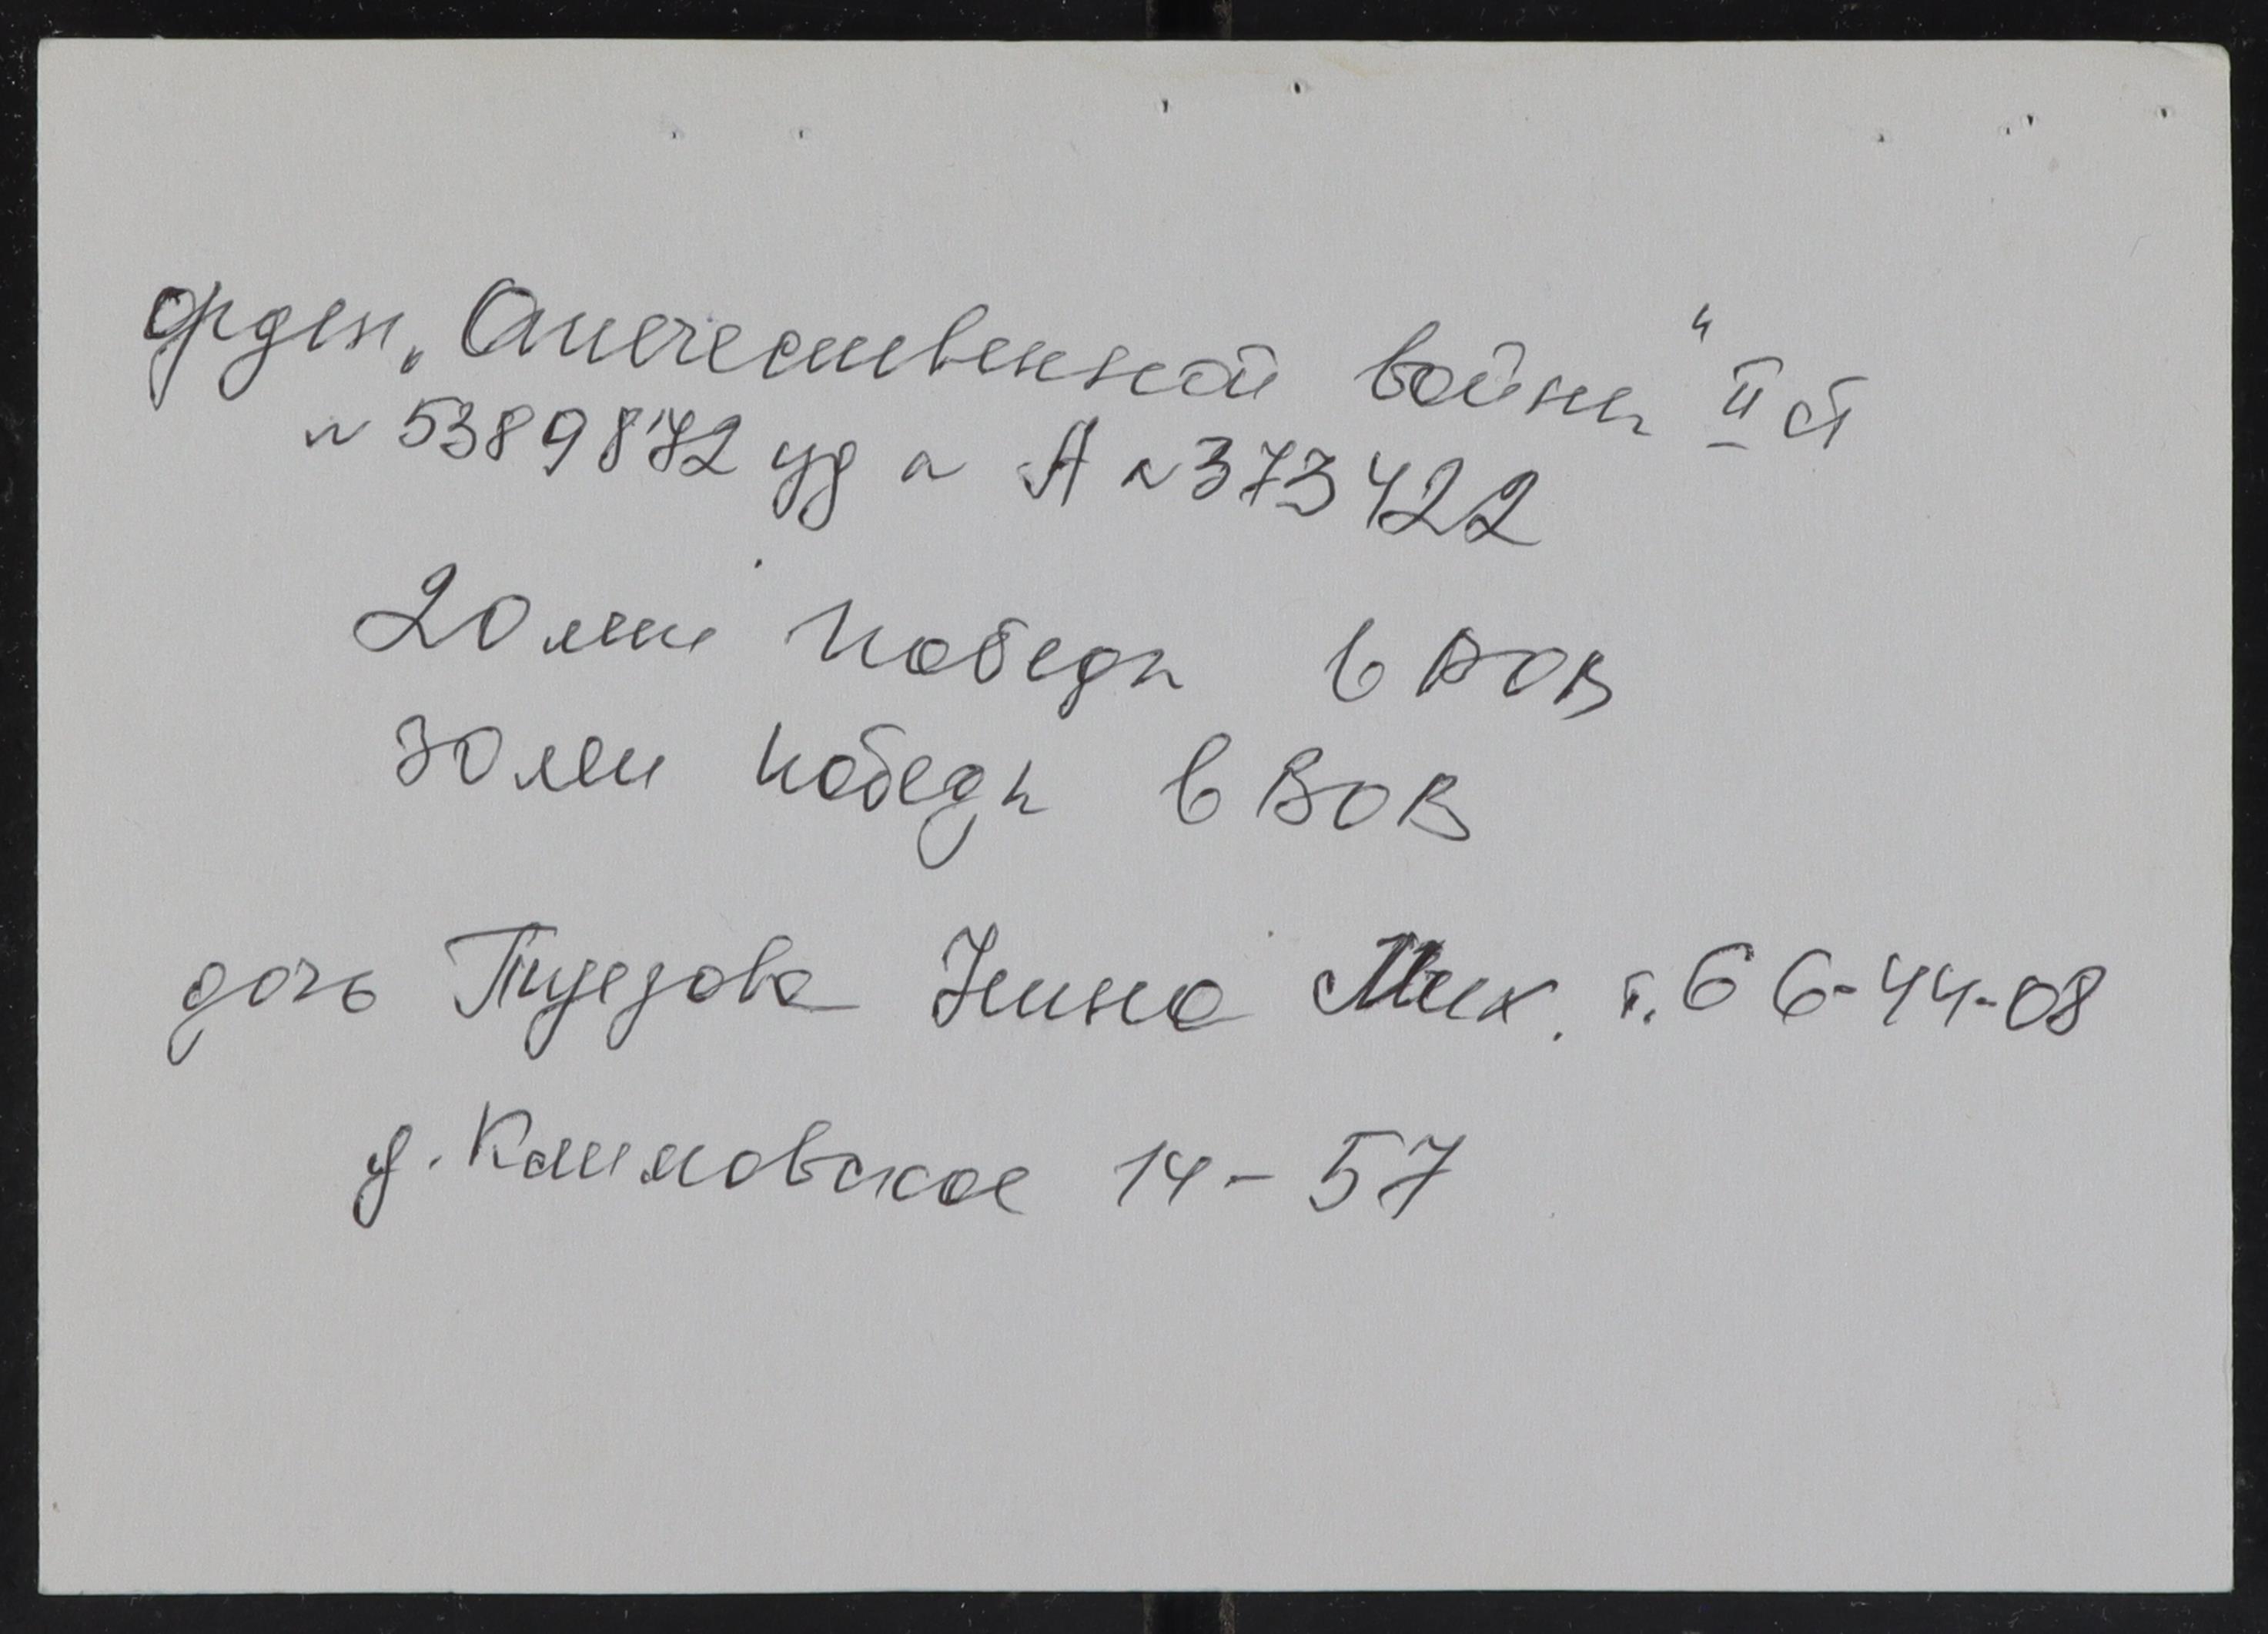 орден „Отечественной войны“ II ст
№ 5389872 уд № А №373422
20 лет победы в ВОВ
30 лет победы в ВОВ
дочь Нина Мих. т. 66-44-08
д. Климовское 14-57